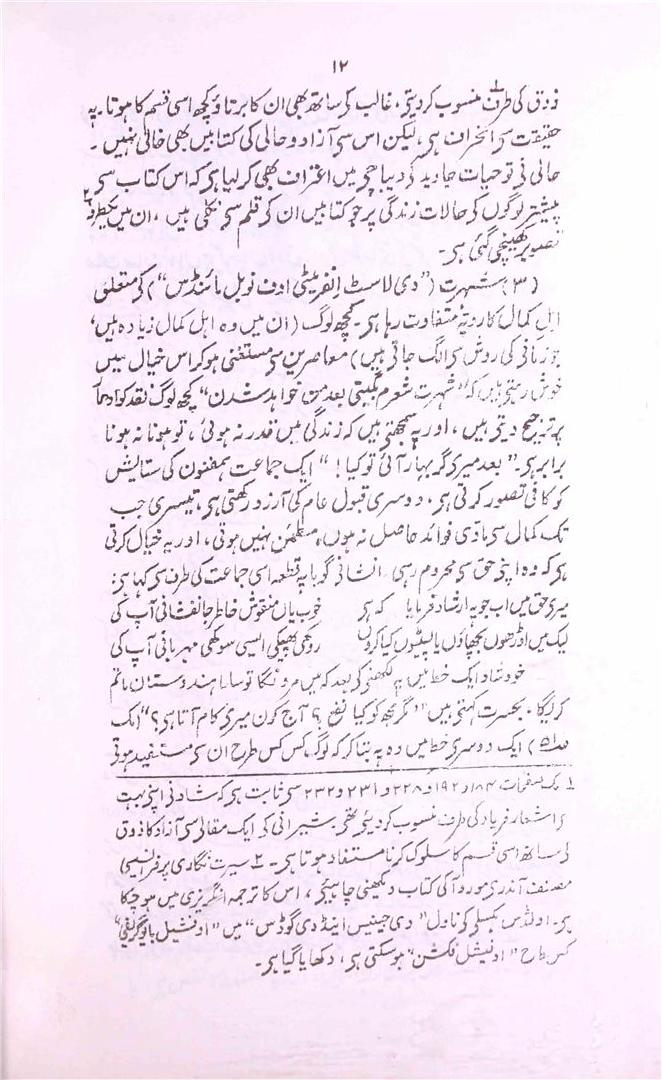 ۱۲
ذوق کی طرف۱ منسوب کر دیتی، غالب کی ساتھ بھی ان کا برتاؤ کچھ اسی قسم کا ہوتا۔ یہ
حقیقت سی انحراف ہی، لیکن اس سی آزاد و حالی کی کتابیں بھی خالی نہیں۔
حالی نی تو حیات جاوید کی دیباچی میں اعتراف بھی کر لیا ہی کہ اس کتاب سی
پیشتر لوگوں کی حالات زندگی پر جو کتابیں ان کی قلم سی نکلی ہیں، ان میں یکطرفہ۲
تصویر کھینچی گئی ہی۔
(۳) شہرت ("دی لاسٹ اِنفرمیٹی اوف نوبل مائنڈس") کی متعلق
اہل کمال کا رویہ متفاوت رہا ہی۔ کچھ لوگ (ان میں وہ اہل کمال زیادہ ہیں،
جو زمانی کی روش سی الگ جاتی ہیں) معاصرین سی مستغنی ہو کر اس خیال میں
خوش رہتی ہیں کہ "شہرت شعرم بگیتی بعد من خواہد شدن" کچھ لوگ نقد کو ادھار
پر ترجیح دیتی ہیں، اور یہ سمجھتی ہیں کہ زندگی میں قدر نہ ہوئی، تو ہونا نہ ہونا
برابر ہی۔ "بعد میری گر بہار آئی تو کیا!" ایک جماعت ہمفنون کی ستایش
کو کافی تصور کرتی ہی، دوسری قبول عام کی آرزو رکھتی ہی، تیسری جب
تک کمال سی مادی فوائد حاصل نہ ہوں، مطمئن نہیں ہوتی، اور یہ خیال کرتی
ہی کہ وہ اپنی حق سی محروم رہی۔ انشا نی گویا یہ قطعہ اسی جماعت کی طرف سی کہا ہی:
میری حق میں اب جو یہ ارشاد فرمایا کہ ہی خوب یاں منقوش خاطر جانفشانی آپ کی
لیک میں اوڑھوں بچھاؤں یا لپیٹوں کیا کروں روکھی پھیکی ایسی سوکھی مہربانی آپ کی
خود شاد ایک خط میں یہ لکھنی کی بعد کہ میں مرونگا تو سارا ہندوستان ماتم
کریگا، بحسرت کہتی ہیں "مگر مجھ کو کیا نفع؟ آج کون میری کام آتا ہی؟" (مک
۵۱) ایک دوسری خط میں وہ یہ بتا کر کہ لوگ کس کس طرح ان سی مستفید ہوتی
۱ مک صفحات ۱۸۴ و ۱۹۲ و ۲۲۸ و ۲۳۱ و ۲۳۲ سی ثابت ہی کہ شاد نی اپنی بہت
سی اشعار فریاد کی طرف منسوب کر دیئی تھی۔ شیرانی کی ایک مقالی سی آزاد کا ذوق
کی ساتھ اسی قسم کا سلوک کرنا مستفاد ہوتا ہی۔ ۲ سیرت نگاری پر فرانسیسی
مصنف آندری مورو آ کی کتاب دیکھنی چاہیئی، اس کا ترجمہ انگریزی میں ہو چکا
ہی۔ اولڈس ہکسلی کی ناول "دی جینیس اینڈ دی گوڈس" میں "اوفشیل بایوگریفی"
کس طرح "اوفیشل فکشن" ہو سکتی ہی، دکھایا گیا ہی۔